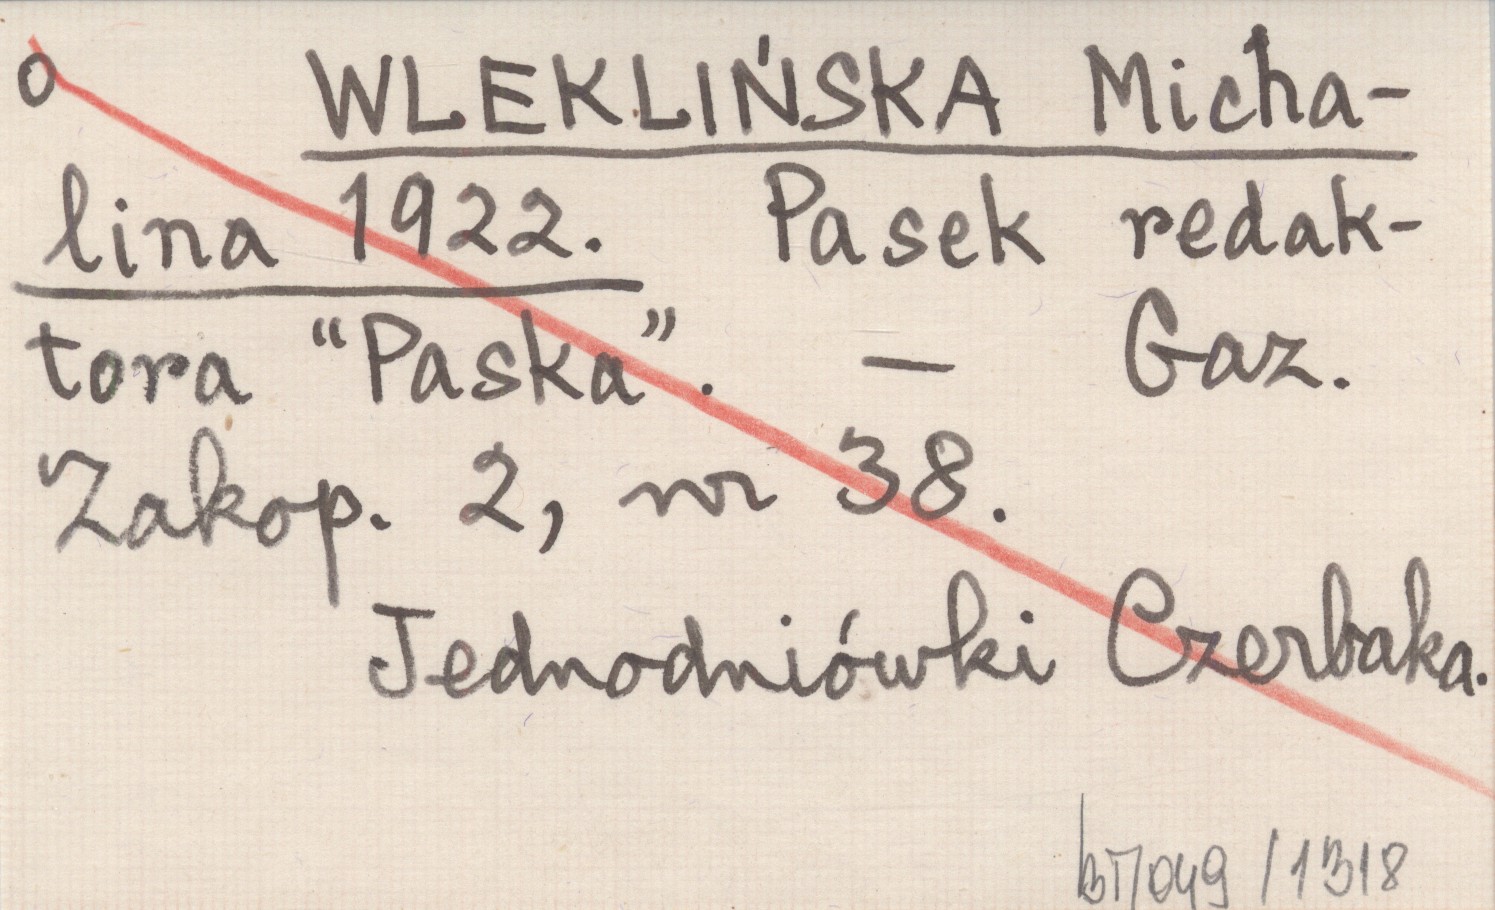 o WLEKLIŃSKA Micha-
lina 1922. Pasek redak-
tora “Paska”. — Gaz.
Zakop. 2, nr 38.
Jednodniówki Czerbaka.
/1318